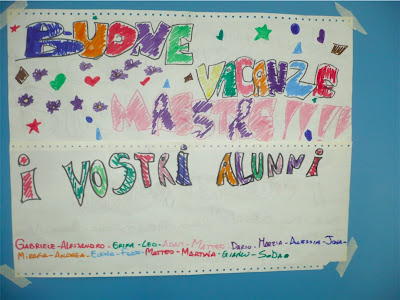 BUONE
VACANZE
MAESTRE!!!!
i VOSTRI ALUNNI
GABRIELE-ALESSANDRO-ERIKA-LEO-ADAM-MATTEO-DARIO-MARZIA-ALESSIA-
MIRARA-ANDREA-ELENA-MATTEO-MARTINA-GIANLU-